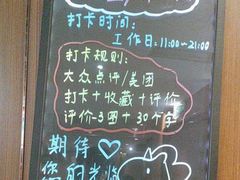 打卡时间:
工作日:11:00~21:00
打卡规则:
大众点评/美团
打卡+收藏+评价
评价-3图+30个字
期待♡
您的光临